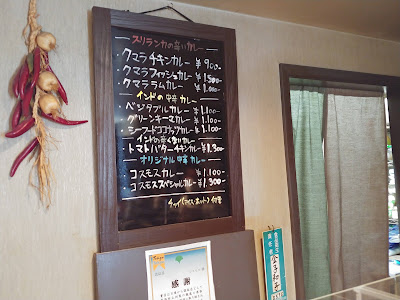 スリランカの辛いカレー
・クマラチキンカレー ¥900-
クマラフィッシュカレー ¥1.500-
クマララムカレー ¥1.000-
インドの中辛カレー
・ベジタブルカレー ¥1.100
・グリーンキーマカレー ¥1.100-
・シーフードココナッツカレー ¥1.100-
インドの辛くないカレー
・トマトバターチキンカレー ¥1.300-
オリジナル中辛カレー
・コスモスカレー ¥1.100-
・コスモススペシャルカレー ¥1.300-
チャイ(アイス・ホット)付き
感謝